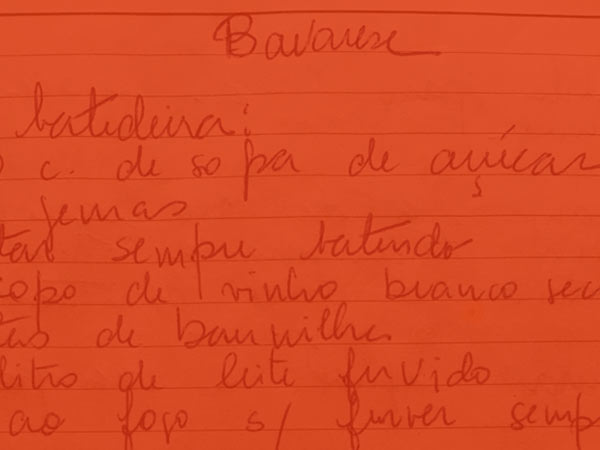 Bavarese
batedeira:
c. de sopa de açúcar
gemas
tar sempre batendo
copo de vinho branco sec
tas de baunilha
litro de leite fervido
ao fogo s/ ferver semp